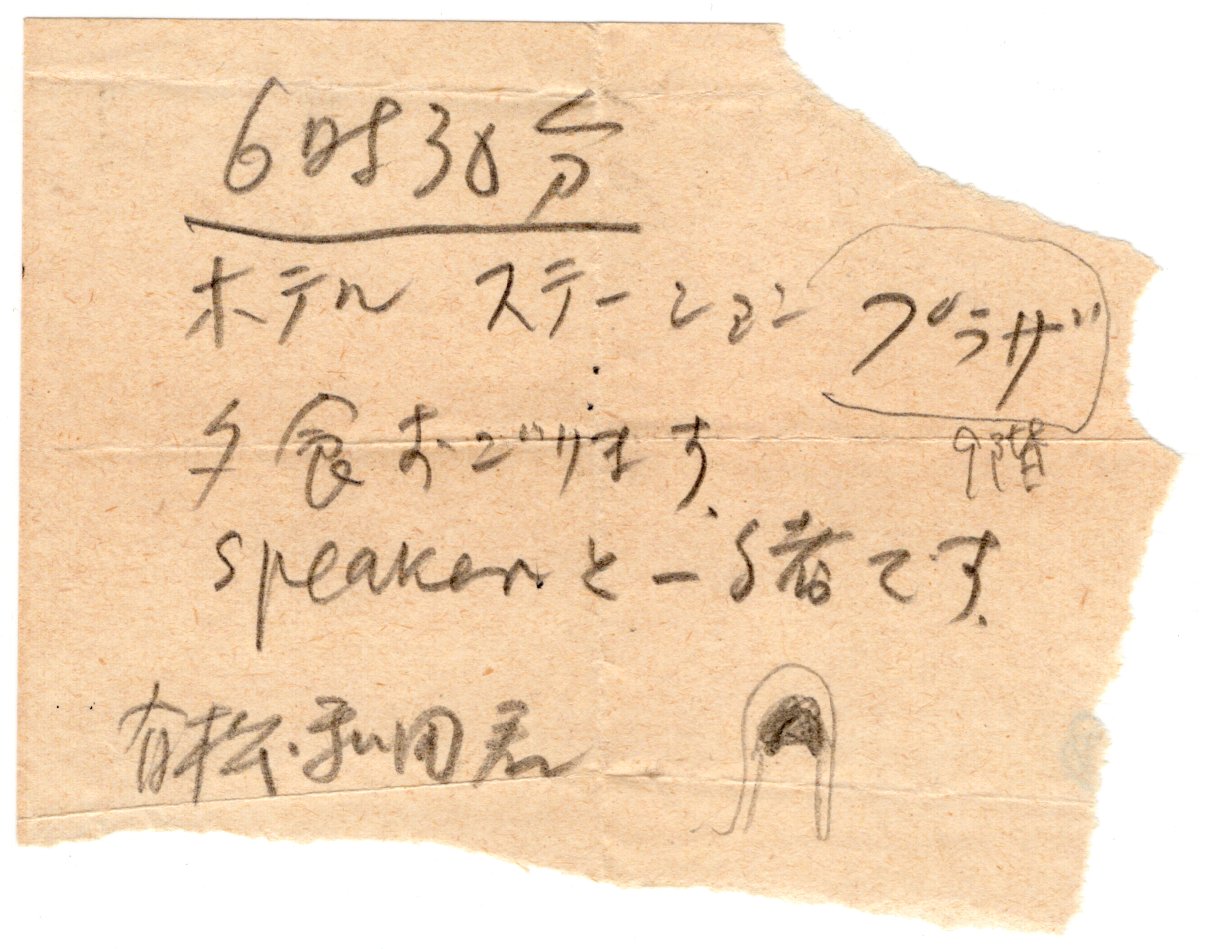 6時30分
ホテル ステーション プラザ
9階
夕食おごります.
speakerと一緒です.
有松・和田君